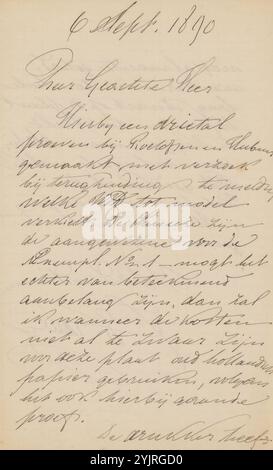 6 Sept. 1890
Zeer Geachte Heer
Hierbij een drietal
proeven bij Roeloffzen en Hübner
gemaakt met verzoek
bij terugzending te melden
welke tot model
verkiest. De zijn
de aangewezene voor de
Exempl. No. 1 mogt het
echter van beteekenend
aanbelang zijn, dan zal
ik wanneer de kosten
niet al te zwaar zijn
voor deze plaat oud hollandsch
papier gebruiken, volgens
het ook hierbij gaande
proef.
De drukker heeft
alamy
Image ID: 2YJRGD0
www.alamy.com